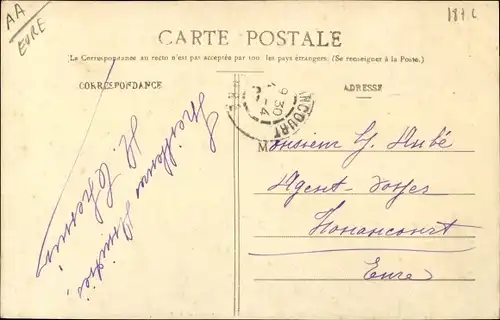 AA
EURE
18+6
CARTE POSTALE
La Correspondance au recto n'est pas acceptée par tous les pays étrangers. (Se renseigner à la Poste.)
CORRESPONDANCE
ADRESSE
9 30
4
NCOURT
Monsieur G. Aubé
Agent-Voyer
Nonancourt
Eure
Meilleures Amitiés